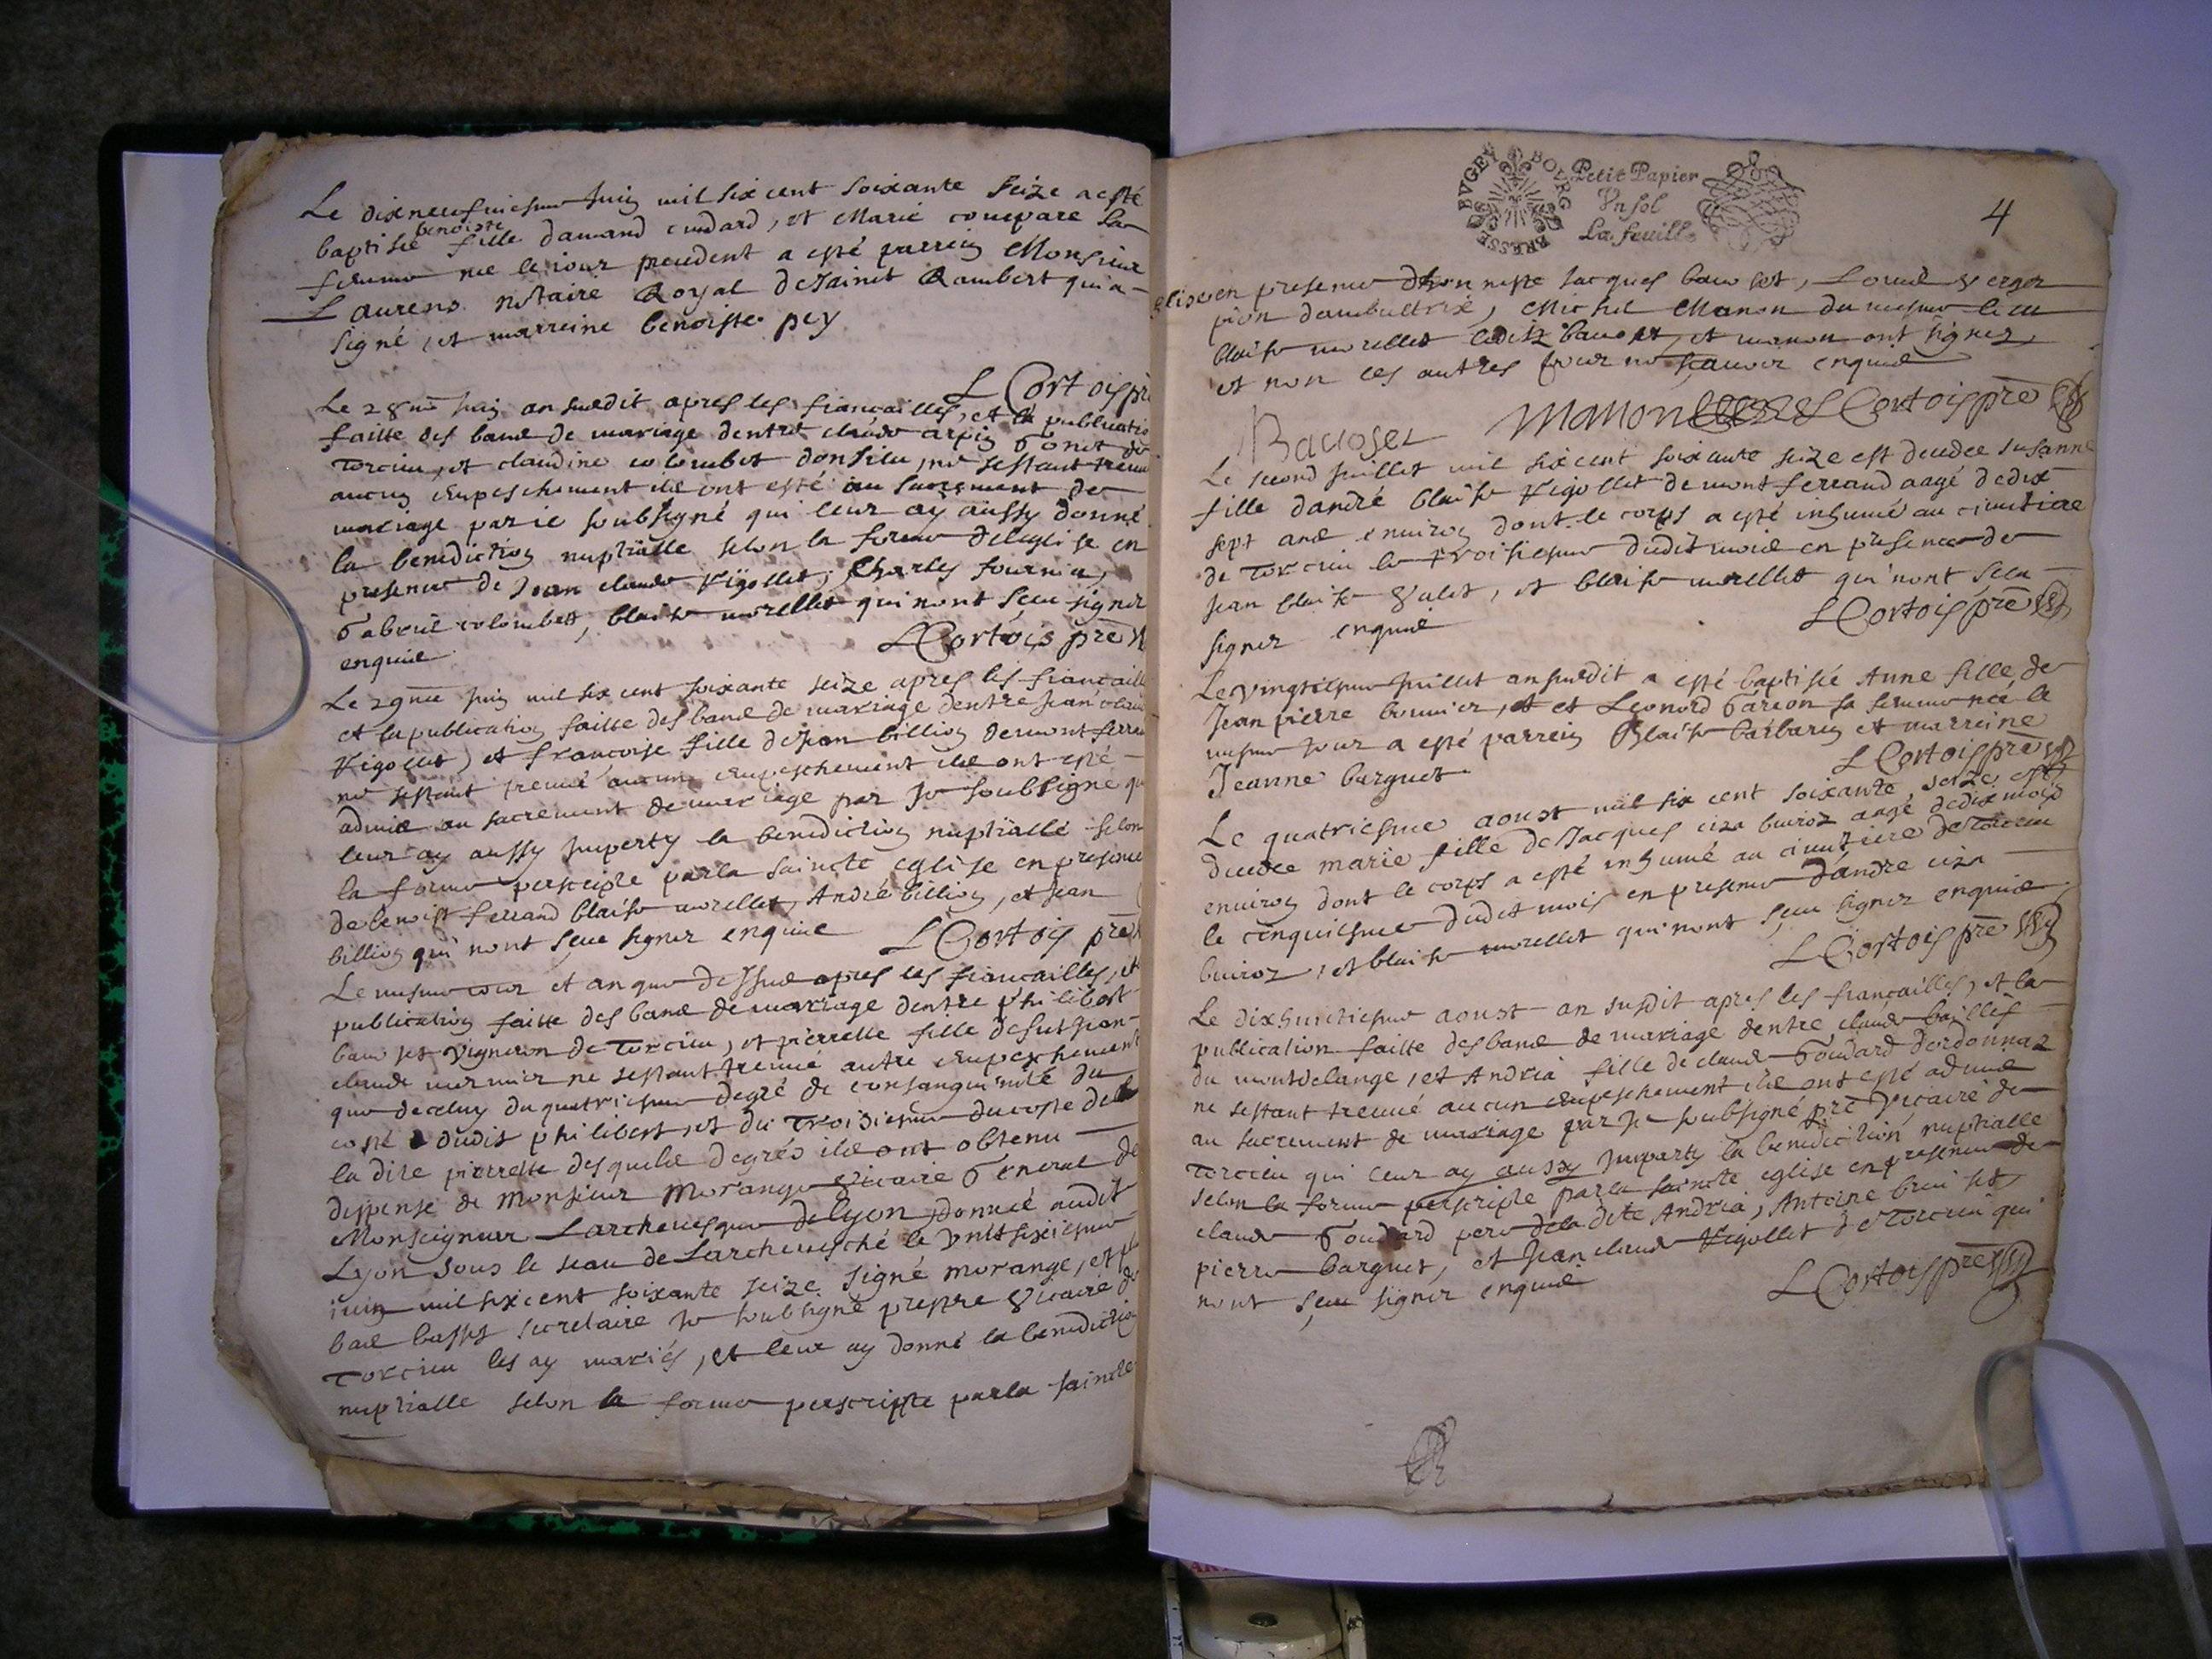 Le dixneufuiesme juin mil six cent soixante seize a esté
baptisée benoiste fille damand cudard, et Marie compare sa
femme née le iour precedent a esté parrein Monsieur
Laurens notaire Royal de Saint Rambert qui a
signé, et marreine benoiste pey
L Cortois pre
Le 28me juin an susdit apres les fiancailles, et la publicatio
faitte des bans de mariage dentre claude arpin Gonet de
torcieu, et claudine colombet donsieu, ne sestant treuué
aucun empeschement ils ont esté au sacrement de
mariage par ie soubsigné qui leur ay aussy donné
la benediction nuptialle selon la forme de leglise en
presence de Jean claude Vigollet, Charles fournier,
Gabriel colombet, blaise morellet qui nont sceu signer
enquis
L Cortois pre
Le 29me juin mil six cent soixante seize apres les fiancaill
et la publication faitte des bans de mariage dentre Jean claude
Vigollet, et francoise fille de Jean billion de mont ferra
ne sestant treuué aucun empeschement ils ont esté
admis au sacrement de mariage par Je soubsigné qu
leur ay aussy imparty la benediction nuptialle selon
la forme perscripte par la saincte eglise en presence
de benoist ferrand blaise morellet, André billion, et Jean
billion qui nont sceu signer enquis L Cortois pre
Le mesme iour et an que dessus apres les fiancailles, et
publication faitte des bans de mariage dentre philibert
bauoset vigneron de torcieu, et pierrette fille de fut Jean
claude mermier ne sestant treuué autre empeschement
que de celuy du quatriesme degré de consanguinité du
costé dudit philibert, et du troisiesme du coste de
la dite pierrette desquels degrés ils ont obtenu
dispense de Monsieur Morange vicaire General de
Monseigneur Larcheuesque de Lyon, donnée audit
Lyon sous le seau de Larcheuesché le vnt sixiesme
iuin mil six cent soixante seize signé morange, et plus
bas basset secretaire Je soubsigné prestre vicaire de
torcieu les ay mariés, et leur ay donné la benediction
nuptialle selon la forme perscripte par la saincte
BVGEY BOVRG BRESSE
Petit Papier
Vn sol
La feuille
4
eglise en presence dhonneste Jacques bauoset, Louis verger
pion dambutrix, Michel Manon du mesme lieu
blaise morellet ledit bauoset, et manon ont signez,
et non les autres pour ne scauoir enquis
Bauoset Manon L Cortois pre
Le second juillet mil six cent soixante seize est decedee susanne
fille dandré blaise Vigollet de mont ferrand aagé de dix
sept ans enuiron dont le corps a esté inhumé au cimetiere
de torcieu le troisiesme dudit mois en presence de
Jean blaise Vulet, et blaise morellet qui nont sceu
signer enquis
L Cortois pre
Le vingtiesme juillet an susdit a esté baptisée Anne fille de
Jean pierre bonnier, et Leonord Garson sa femme née le
mesme jour a esté parrein Blaise barbarin et marreine
Jeanne barguet
L Cortois pre
Le quatriesme aoust mil six cent soixante seize est
decedee marie fille de Jacques ciza buiroz aagé de dix mois
enuiron dont le corps a esté inhumé au cimetiere de torcieu
le cinquiesme dudit mois en presence dandre ciza
buiroz, et blaise morellet qui nont sceu signer enquis
L Cortois pre
Le dixhuictiesme aoust an susdit apres les fiancailles, et la
publication faitte des bans de mariage dentre claude baillif
du montdelange, et Andria fille de claude Goudard dordonnaz
ne sestant treuué aucun empeschement ils ont esté admis
au sacrement de mariage par Je soubsigné pre vicaire de
torcieu qui leur ay aussy imparty la benediction nuptialle
selon la forme perscripte par la saincte eglise en presence de
claude Goudard pere de la dite Andria, Antoine bruiset,
pierre barguet, et Jean claude Vigollet de torcieu qui
nont sceu signer enquis
L Cortois pre